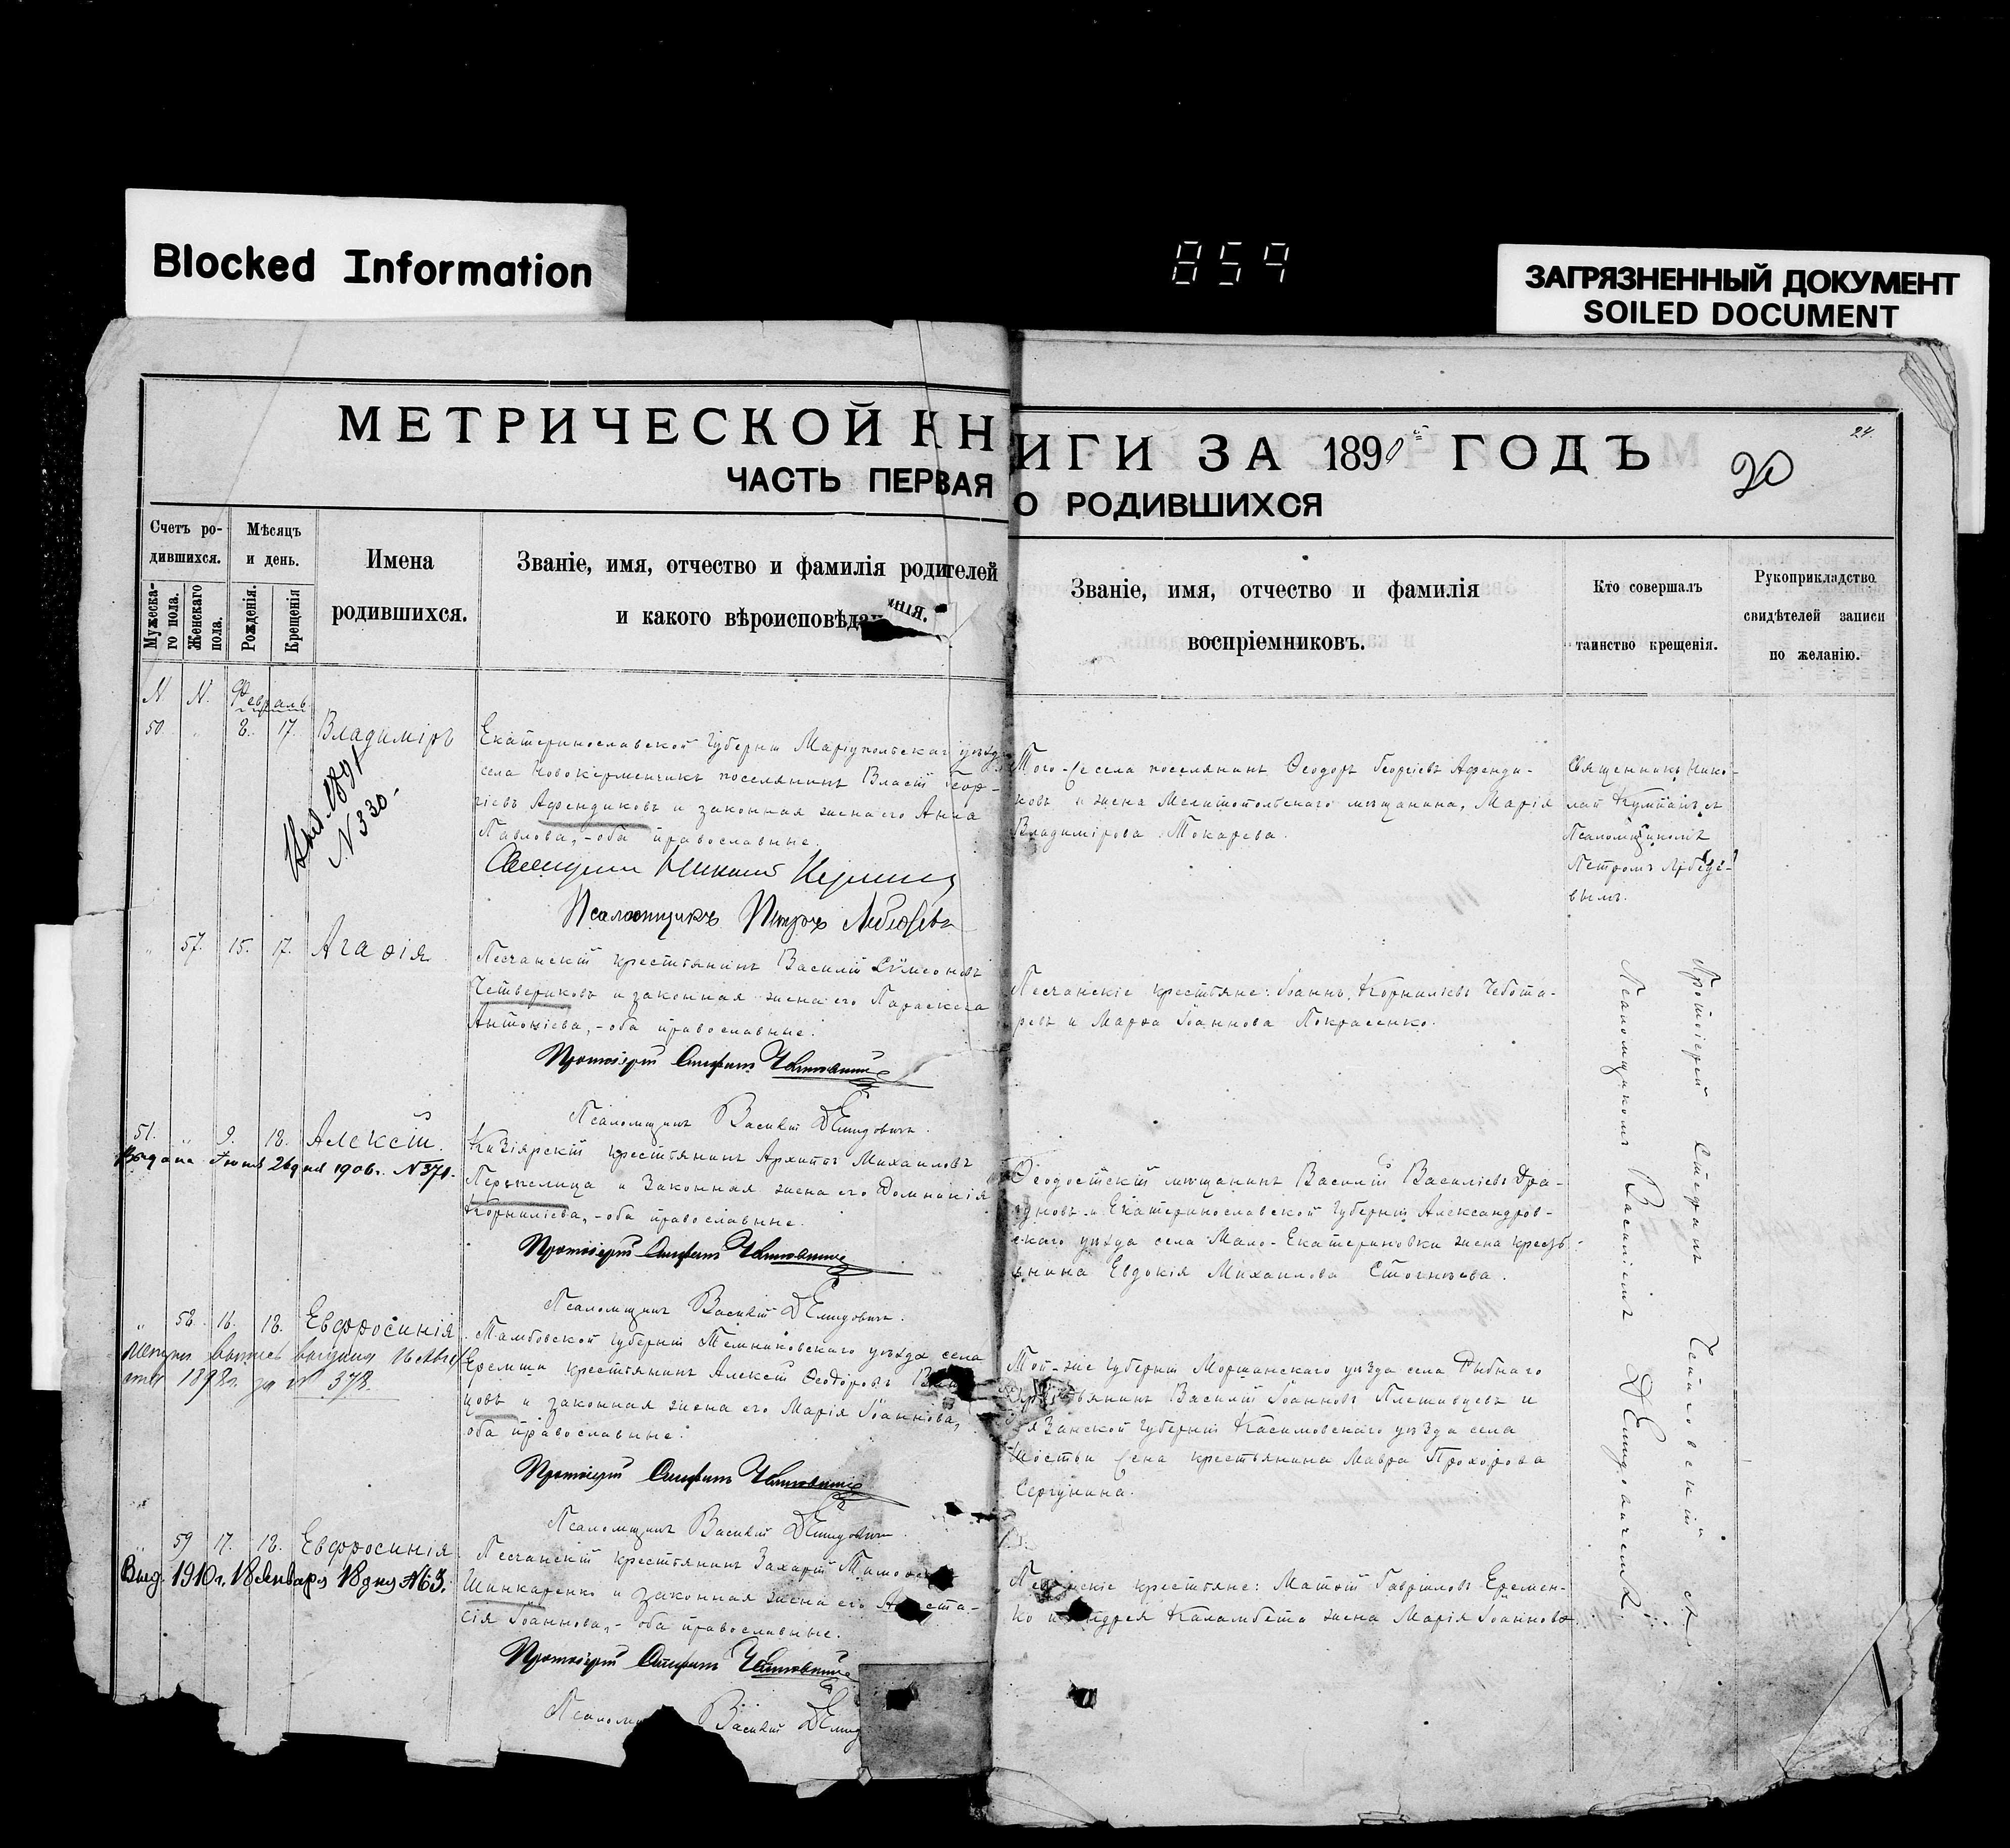 Blocked Information
859
ЗАГРЯЗНЕННЫЙ ДОКУМЕНТ
SOILED DOCUMENT
МЕТРИЧЕСКОЙ КНИГИ ЗА 1890й ГОДЪ
24.
20
ЧАСТЬ ПЕРВАЯ О РОДИВШИХСЯ
Счетъ ро-
дившихся.
Мужеска-
го пола.
Женскаго
пола.
Мѣсяцъ
и день.
Рожденія.
Крещенія
Имена
родившихся.
Званіе, имя, отчество и фамилія родителей
и какого вѣроисповѣданія.
Званіе, имя, отчество и фамилія
воспріемниковъ.
Кто совершалъ
таинство крещенія.
Рукоприкладство
свидѣтелей записи
по желанію.
N N. Февраль
50. " 8. 17. Владиміръ
1891
N 330.
Екатеринославской губерніи Маріупольскаго уѣзда
села Новокерменчикъ поселянинъ Власій Геор-
гіевъ Афендиковъ и законная жена его Анна
Павлова, - оба православные.
Священникъ Николай
Псаломщикъ Петръ Лебедевъ
Того-же села поселянинъ Ѳеодоръ Георгіевъ Афенди-
ковъ и жена Мелитопольскаго мѣщанина, Марія
Владимірова Токарева.
Священникъ Нико-
лай съ
Псаломщикомъ
Петромъ Лебеде-
вымъ.
" 57. 15. 17. Агафія.
Песчанскій крестьянинъ Василій Сѵмеоновъ
Четвериковъ и законная жена его Параскева
Антоніева, - оба православные.
Протоіерей Стефанъ
Псаломщикъ Василій Демидовичъ.
Песчанскіе крестьяне: Іоаннъ Корниліевъ Чебота-
ревъ и Марѳа Іоаннова Покрасенко.
51. " 9. 18. Алексій.
Выдана Іюня 26 дня 1906 г. N 371.
Кизіярскій крестьянинъ Архипъ Михаиловъ
Перепелица и законная жена его Домникія
Корниліева, - оба православные.
Протоіерей Стефанъ
Псаломщикъ Василій Демидовичъ.
Ѳеодосійскій мѣщанинъ Василій Василіевъ Дра-
гуновъ и Екатеринославской губерніи Александров-
скаго уѣзда села Мало-Екатериновки жена кресть-
янина Евдокія Михаилова
" 58. 16. 18. Евфросинія
выпись выдана 16
1898 г. за № 378.
Тамбовской губерніи Темниковскаго уѣзда села
Еремши крестьянинъ Алексій Ѳеодоровъ
цовъ и законная жена его Марія Іоаннова,
оба православные.
Протоіерей Стефанъ
Псаломщикъ Василій Демидовичъ.
Той-же губерніи Моршанскаго уѣзда села Рыбнаго
крестьянинъ Василій Іоанновъ Плешивцевъ и
Рязанской губерніи Касимовскаго уѣзда села
Шостьи жена крестьянина Мавра Прохорова
Сергунина.
" 59 17. 18. Евфросинія
Выд. 1910 г. Января 18 дня № 63.
Песчанскій крестьянинъ Захарій
Шинкаренко и законная жена его Анаста-
сія Іоаннова, - оба православные.
Протоіерей Стефанъ
Псаломщикъ Василій
Песчанскіе крестьяне: Матѳій Гавріиловъ Еремен-
ко и Андрея Каламбета жена Марія Іоаннова.
Протоіерей Стефанъ съ
Псаломщикомъ Василіемъ